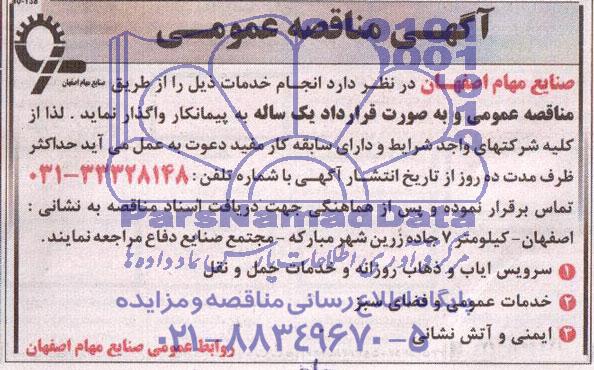 آگهی مناقصه عمومی
صنایع مهام اصفهان
صنایع مهام اصفهان در نظر دارد انجام خدمات ذیل را از طریق
مناقصه عمومی و به صورت قرارداد یک ساله به پیمانکار واگذار نماید . لذا از
کلیه شرکتهای واجد شرایط و دارای سابقه کار مفید دعوت به عمل می آید حداکثر
ظرف مدت ده روز از تاریخ انتشار آگهی با شماره تلفن: ۳۳۳۲۸۱۴۸-۰۳۱
تماس برقرار نموده و پس از هماهنگی جهت دریافت اسناد مناقصه به نشانی :
اصفهان- کیلومتر ۷ جاده زرین شهر مبارکه - مجتمع صنایع دفاع مراجعه نمایند.
۱ سرویس ایاب و ذهاب روزانه و خدمات حمل و نقل
۲ خدمات عمومی و فضای سبز
۳ ایمنی و آتش نشانی
روابط عمومی صنایع مهام اصفهان
ParsNamadData
مرکز فرآوری اطلاعات پارس نماد داده ها
پایگاه اطلاع رسانی مناقصه و مزایده
۰۲۱-۸۸۳۴۹۶۷۰-۵